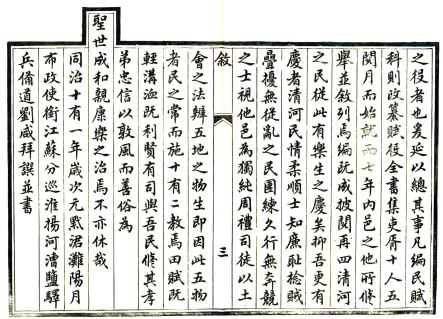 之役者也爰延以總其事凡編民賦
科則改纂賦役全書集吏胥十人五
閱月而始就而七年内邑之他所修
舉並敘列焉編既成披閱再四清河
之民從此有樂生之慶矣抑吾更有
慶者清河民情柔順士知廉恥捻賊
疊擾無從亂之民團練久行無奔競
之士視他邑為獨純周禮司徒以土
敘
三
會之法辨五地之物生即因此五物
者民之常而施十有二教焉田賦既
輕溝洫既利賢有司與吾民修其孝
弟忠信以敦風而善俗為
聖世咸和親康樂之治焉不亦休哉
同治十有一年歲次元黓涒灘陽月
布政使銜江蘇分巡淮揚河漕鹽驛
兵備道劉咸拜譔並書